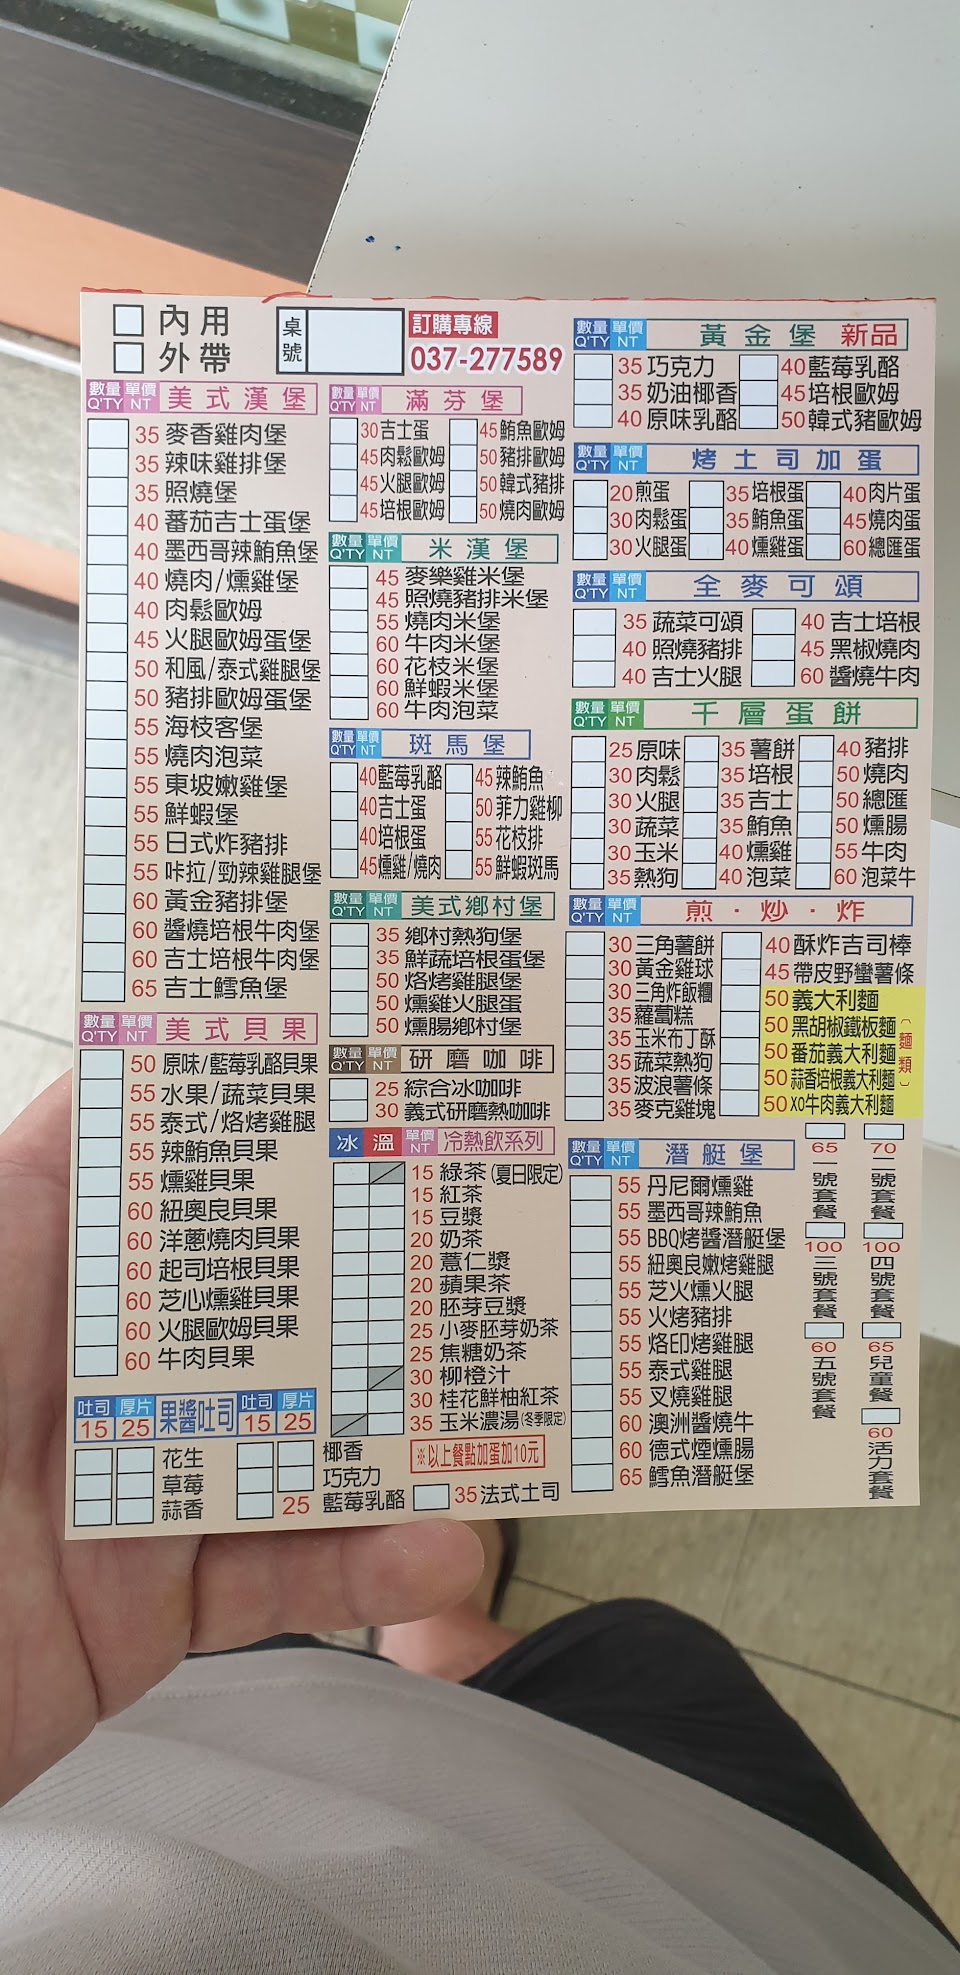 內用
外帶
桌號
訂購專線
037-277589
數量 Q'TY 單價 NT 美式漢堡
35 麥香雞肉堡
35 辣味雞排堡
35 照燒堡
40 蕃茄吉士蛋堡
40 墨西哥辣鮪魚堡
40 燒肉/燻雞堡
40 肉鬆歐姆
45 火腿歐姆蛋堡
50 和風/泰式雞腿堡
50 豬排歐姆蛋堡
55 海枝客堡
55 燒肉泡菜
55 東坡嫩雞堡
55 鮮蝦堡
55 日式炸豬排
55 咔拉/勁辣雞腿堡
60 黃金豬排堡
60 醬燒培根牛肉堡
60 吉士培根牛肉堡
65 吉士鱈魚堡
數量 Q'TY 單價 NT 美式貝果
50 原味/藍莓乳酪貝果
55 水果/蔬菜貝果
55 泰式/烙烤雞腿
55 辣鮪魚貝果
55 燻雞貝果
60 紐奧良貝果
60 洋蔥燒肉貝果
60 起司培根貝果
60 芝心燻雞貝果
60 火腿歐姆貝果
60 牛肉貝果
吐司 15 厚片 25 果醬吐司 吐司 15 厚片 25
花生 椰香
草莓 巧克力
蒜香 25 藍莓乳酪
數量 Q'TY 單價 NT 滿芬堡
30 吉士蛋 45 鮪魚歐姆
45 肉鬆歐姆 50 豬排歐姆
45 火腿歐姆 50 韓式豬排
45 培根歐姆 50 燒肉歐姆
數量 Q'TY 單價 NT 米漢堡
45 麥樂雞米堡
45 照燒豬排米堡
55 燒肉米堡
60 牛肉米堡
60 花枝米堡
60 鮮蝦米堡
60 牛肉泡菜
數量 Q'TY 單價 NT 斑馬堡
40 藍莓乳酪 45 辣鮪魚
40 吉士蛋 50 菲力雞柳
40 培根蛋 55 花枝排
45 燻雞/燒肉 55 鮮蝦斑馬
數量 Q'TY 單價 NT 美式鄉村堡
35 鄉村熱狗堡
35 鮮蔬培根蛋堡
50 烙烤雞腿堡
50 燻雞火腿蛋
50 燻腸鄉村堡
數量 Q'TY 單價 NT 研磨咖啡
25 綜合冰咖啡
30 義式研磨熱咖啡
冰 溫 單價 NT 冷熱飲系列
15 綠茶(夏日限定)
15 紅茶
15 豆漿
20 奶茶
20 薏仁漿
20 蘋果茶
20 胚芽豆漿
25 小麥胚芽奶茶
25 焦糖奶茶
30 柳橙汁
30 桂花鮮柚紅茶
35 玉米濃湯(冬季限定)
※以上餐點加蛋加10元
35 法式土司
數量 Q'TY 單價 NT 黃金堡 新品
35 巧克力 40 藍莓乳酪
35 奶油椰香 45 培根歐姆
40 原味乳酪 50 韓式豬歐姆
數量 Q'TY 單價 NT 烤土司加蛋
20 煎蛋 35 培根蛋 40 肉片蛋
30 肉鬆蛋 35 鮪魚蛋 45 燒肉蛋
30 火腿蛋 40 燻雞蛋 60 總匯蛋
數量 Q'TY 單價 NT 全麥可頌
35 蔬菜可頌 40 吉士培根
40 照燒豬排 45 黑椒燒肉
40 吉士火腿 60 醬燒牛肉
數量 Q'TY 單價 NT 千層蛋餅
25 原味 35 薯餅 40 豬排
30 肉鬆 35 培根 50 燒肉
30 火腿 35 吉士 50 總匯
30 蔬菜 35 鮪魚 50 燻腸
30 玉米 40 燻雞 55 牛肉
35 熱狗 40 泡菜 60 泡菜牛
數量 Q'TY 單價 NT 煎・炒・炸
30 三角薯餅 40 酥炸吉司棒
30 黃金雞球 45 帶皮野蠻薯條
30 三角炸飯糰 50 義大利麵
35 蘿蔔糕 50 黑胡椒鐵板麵
35 玉米布丁酥 50 番茄義大利麵
35 蔬菜熱狗 50 蒜香培根義大利麵
35 波浪薯條 50 XO牛肉義大利麵
35 麥克雞塊
(麵類)
數量 Q'TY 單價 NT 潛艇堡
55 丹尼爾燻雞
55 墨西哥辣鮪魚
55 BBQ烤醬潛艇堡
55 紐奧良嫩烤雞腿
55 芝火燻火腿
55 火烤豬排
55 烙印烤雞腿
55 泰式雞腿
55 叉燒雞腿
60 澳洲醬燒牛
60 德式煙燻腸
65 鱈魚潛艇堡
65 一號套餐
70 二號套餐
100 三號套餐
100 四號套餐
60 五號套餐
65 兒童餐
60 活力套餐